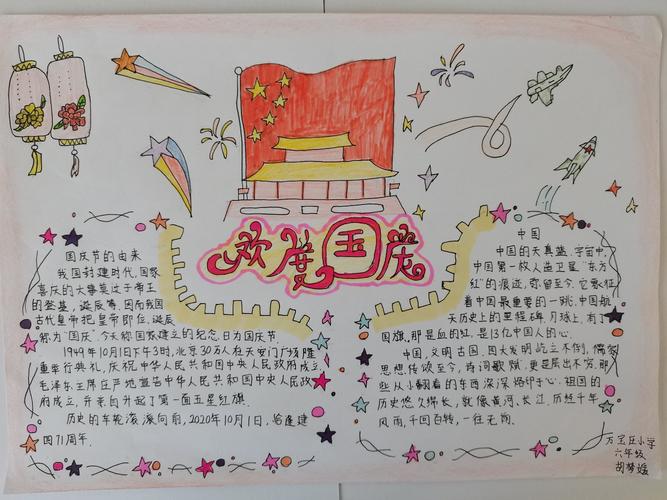 欢度国庆
国庆节的由来
我国封建时代，国家
喜庆的大事莫过于帝王
的登基，诞辰等，因而我国
古代皇帝把皇帝即位，诞辰
称为“国庆”，今天称国家建立的纪念日为国庆节。
1949年10月1日下午3时，北京30万人在天安门广场隆
重举行典礼，庆祝中华人民共和国中央人民政府成立
毛泽东主席庄严地宣告中华人民共和国中央人民政
府成立，并亲自升起了第一面五星红旗
历史的车轮滚滚向前，2020年10月1日，恰逢建
国71周年
中国
中国的天真蓝，宇宙中，
中国第一枚人造卫星“东方
红”的痕迹，亦留至今，它象征
着中国最重要的一跳，中国航
天历史上的里程碑，月球上，有了
国旗，那是血的红，是13亿中国人的心。
中国，文明古国，四大发明屹立不倒，儒家
思想传颂至今，诗词歌赋，更是层出不穷，那
些从小翻看的东西深深烙印于心，祖国的
历史悠久绵长，就像黄河、长江，历经千年
风雨，千回百转，一往无前
万宝庄小学
六年级
胡梦媛